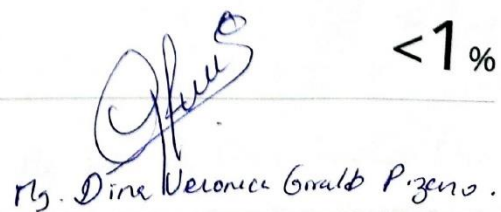 <1 %
Mg. Dina Veronica Giraldo Pizano.